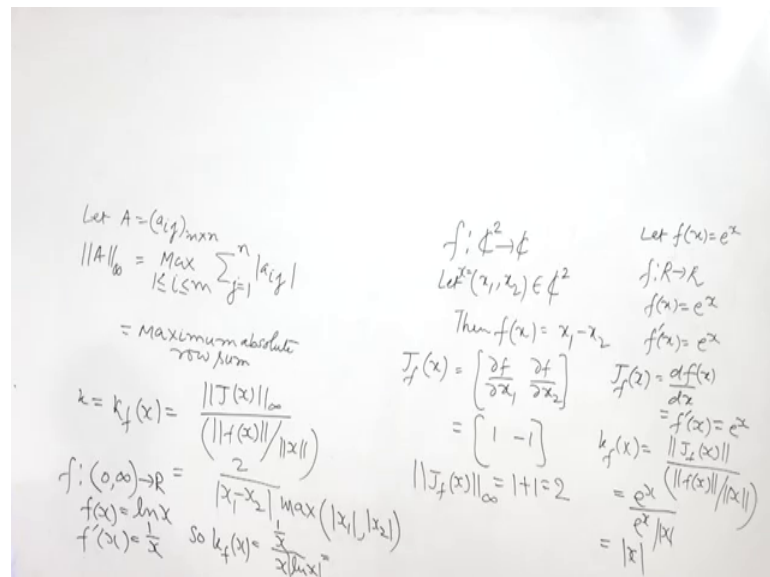 Let A = (aij)m×n
||A||∞ = Max 1≤i≤m ∑ j=1 n |aij|
= Maximum absolute
row sum
k = kf(x) = ||J(x)||∞ / (||f(x)|| / ||x||)
= 2 / |x1-x2| max(|x1|, |x2|)
f: (0,∞)→R
f(x) = lnx
f'(x) = 1/x
so kf(x) = 1/x / x|lnx| =
f: ₵² → ₵
Let x=(x1, x2) ∈ ₵²
Then f(x) = x1-x2
Jf(x) = [∂f/∂x1 ∂f/∂x2]
= [1 -1]
||Jf(x)||∞ = 1+1=2
Let f(x) = e^x
f: R→R
f(x) = e^x
f'(x) = e^x
Jf(x) = df(x)/dx
= f'(x) = e^x
kf(x) = ||Jf(x)|| / (||f(x)|| / ||x||)
= e^x / e^x/|x|
= |x|